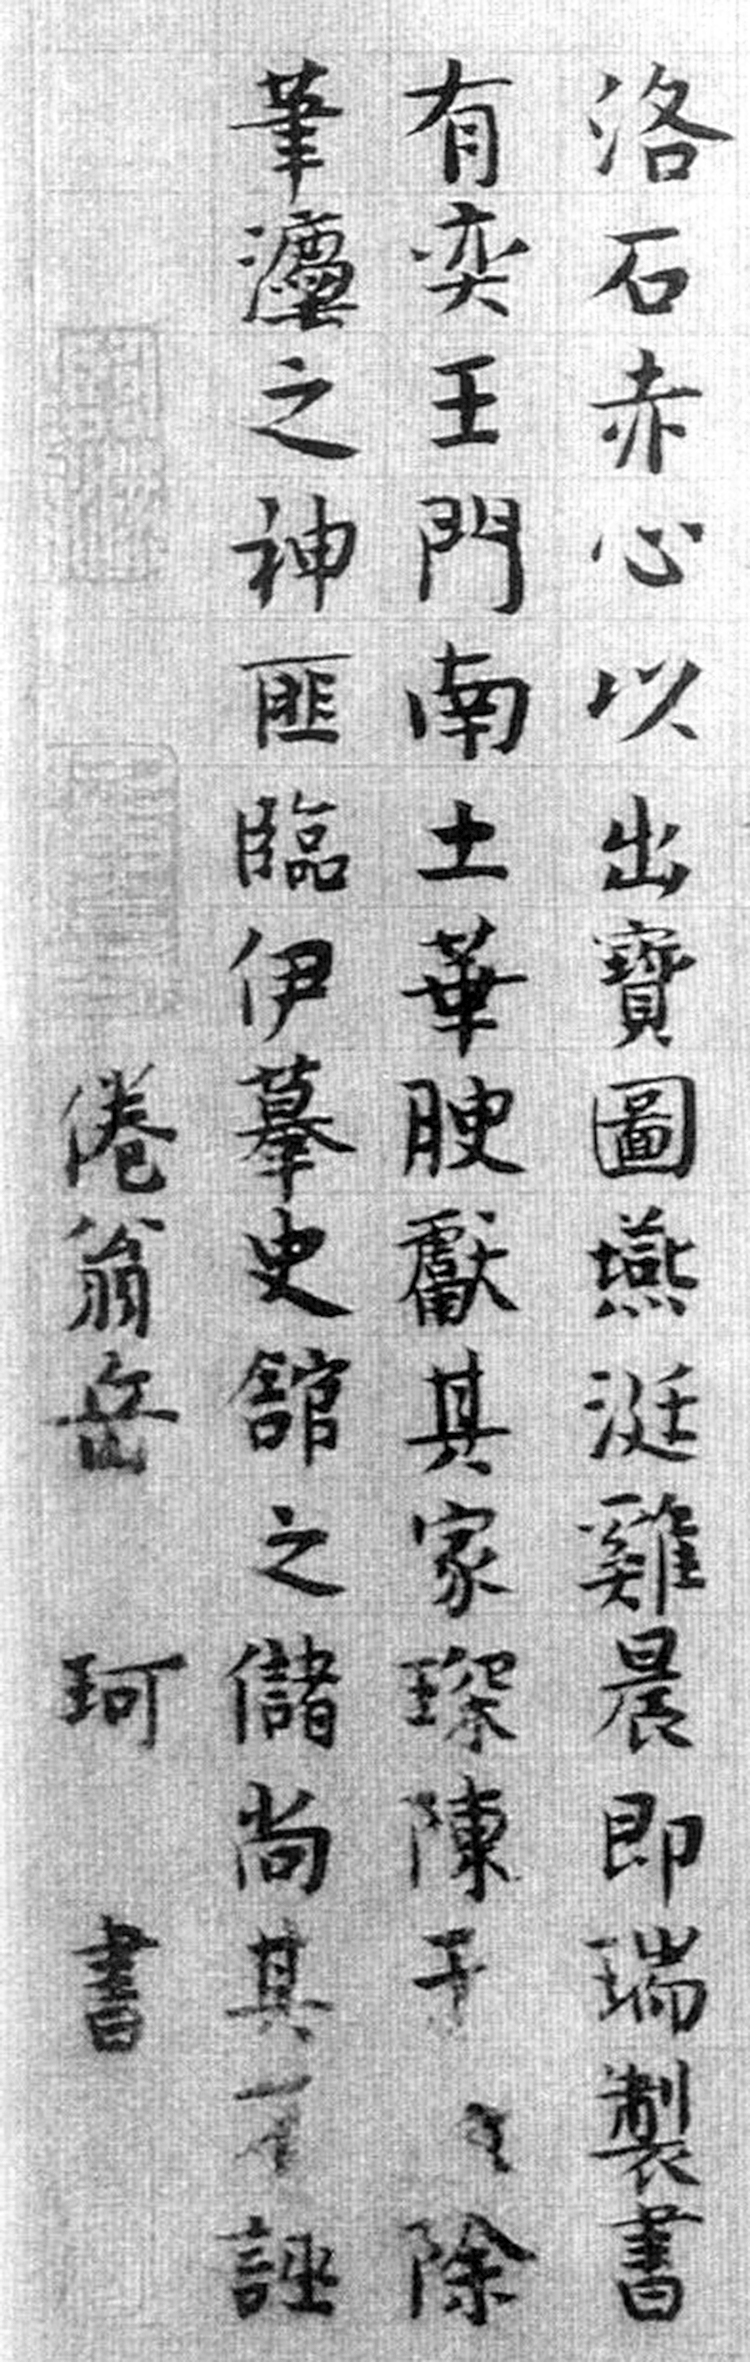 洛石赤心以出寶圖燕涏雞晨即瑞製書
有奕王門南土華腴獻其家琛陳于除
筆灋之神匪臨伊摹史舘之儲尚其誣
倦翁岳珂書